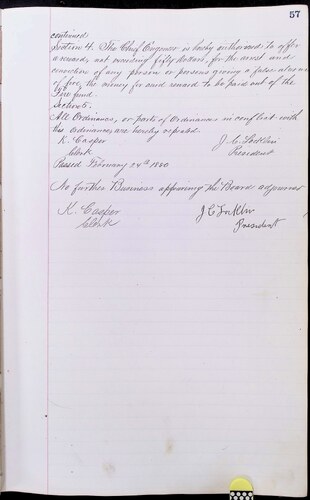 57
continued.
Section 4. The Chief Engineer is hereby authorized to offer
a reward, not exceeding fifty dollars, for the arrest and
conviction of any person or persons giving a false alarm
of fire, the money for said reward to be paid out of the
Fire fund.
Section 5.
All Ordinances, or parts of Ordinances in conflict with
this Ordinance, are hereby repealed.
K. Casper J. C.
Clerk President
Passed February 24th
No further Business appearing the Board adjourned
K. Casper J C
Clerk President